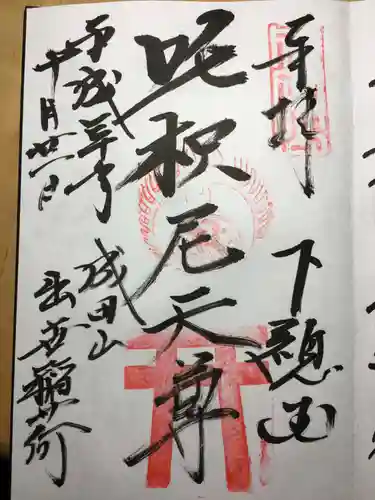 奉拝
下總国
吒枳尼天尊
成田山
出世稲荷
平成卅年
十月廿一日